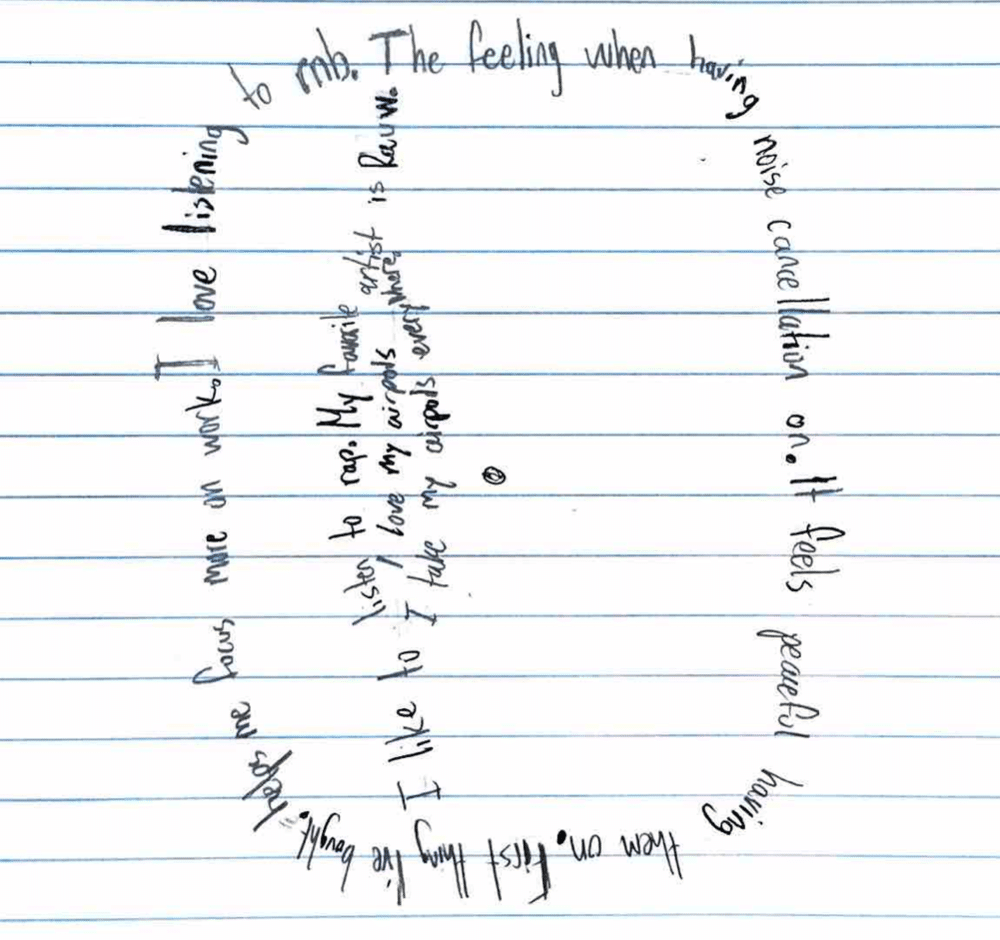 I love listening to rnb. The feeling when having noise cancellation on. It feels peaceful having them on. First thing I've bought. helps me focus more on work.
I like to listen to rap. My favorite artist is Rauw.
I love my airpods
I take my airpods everywhere